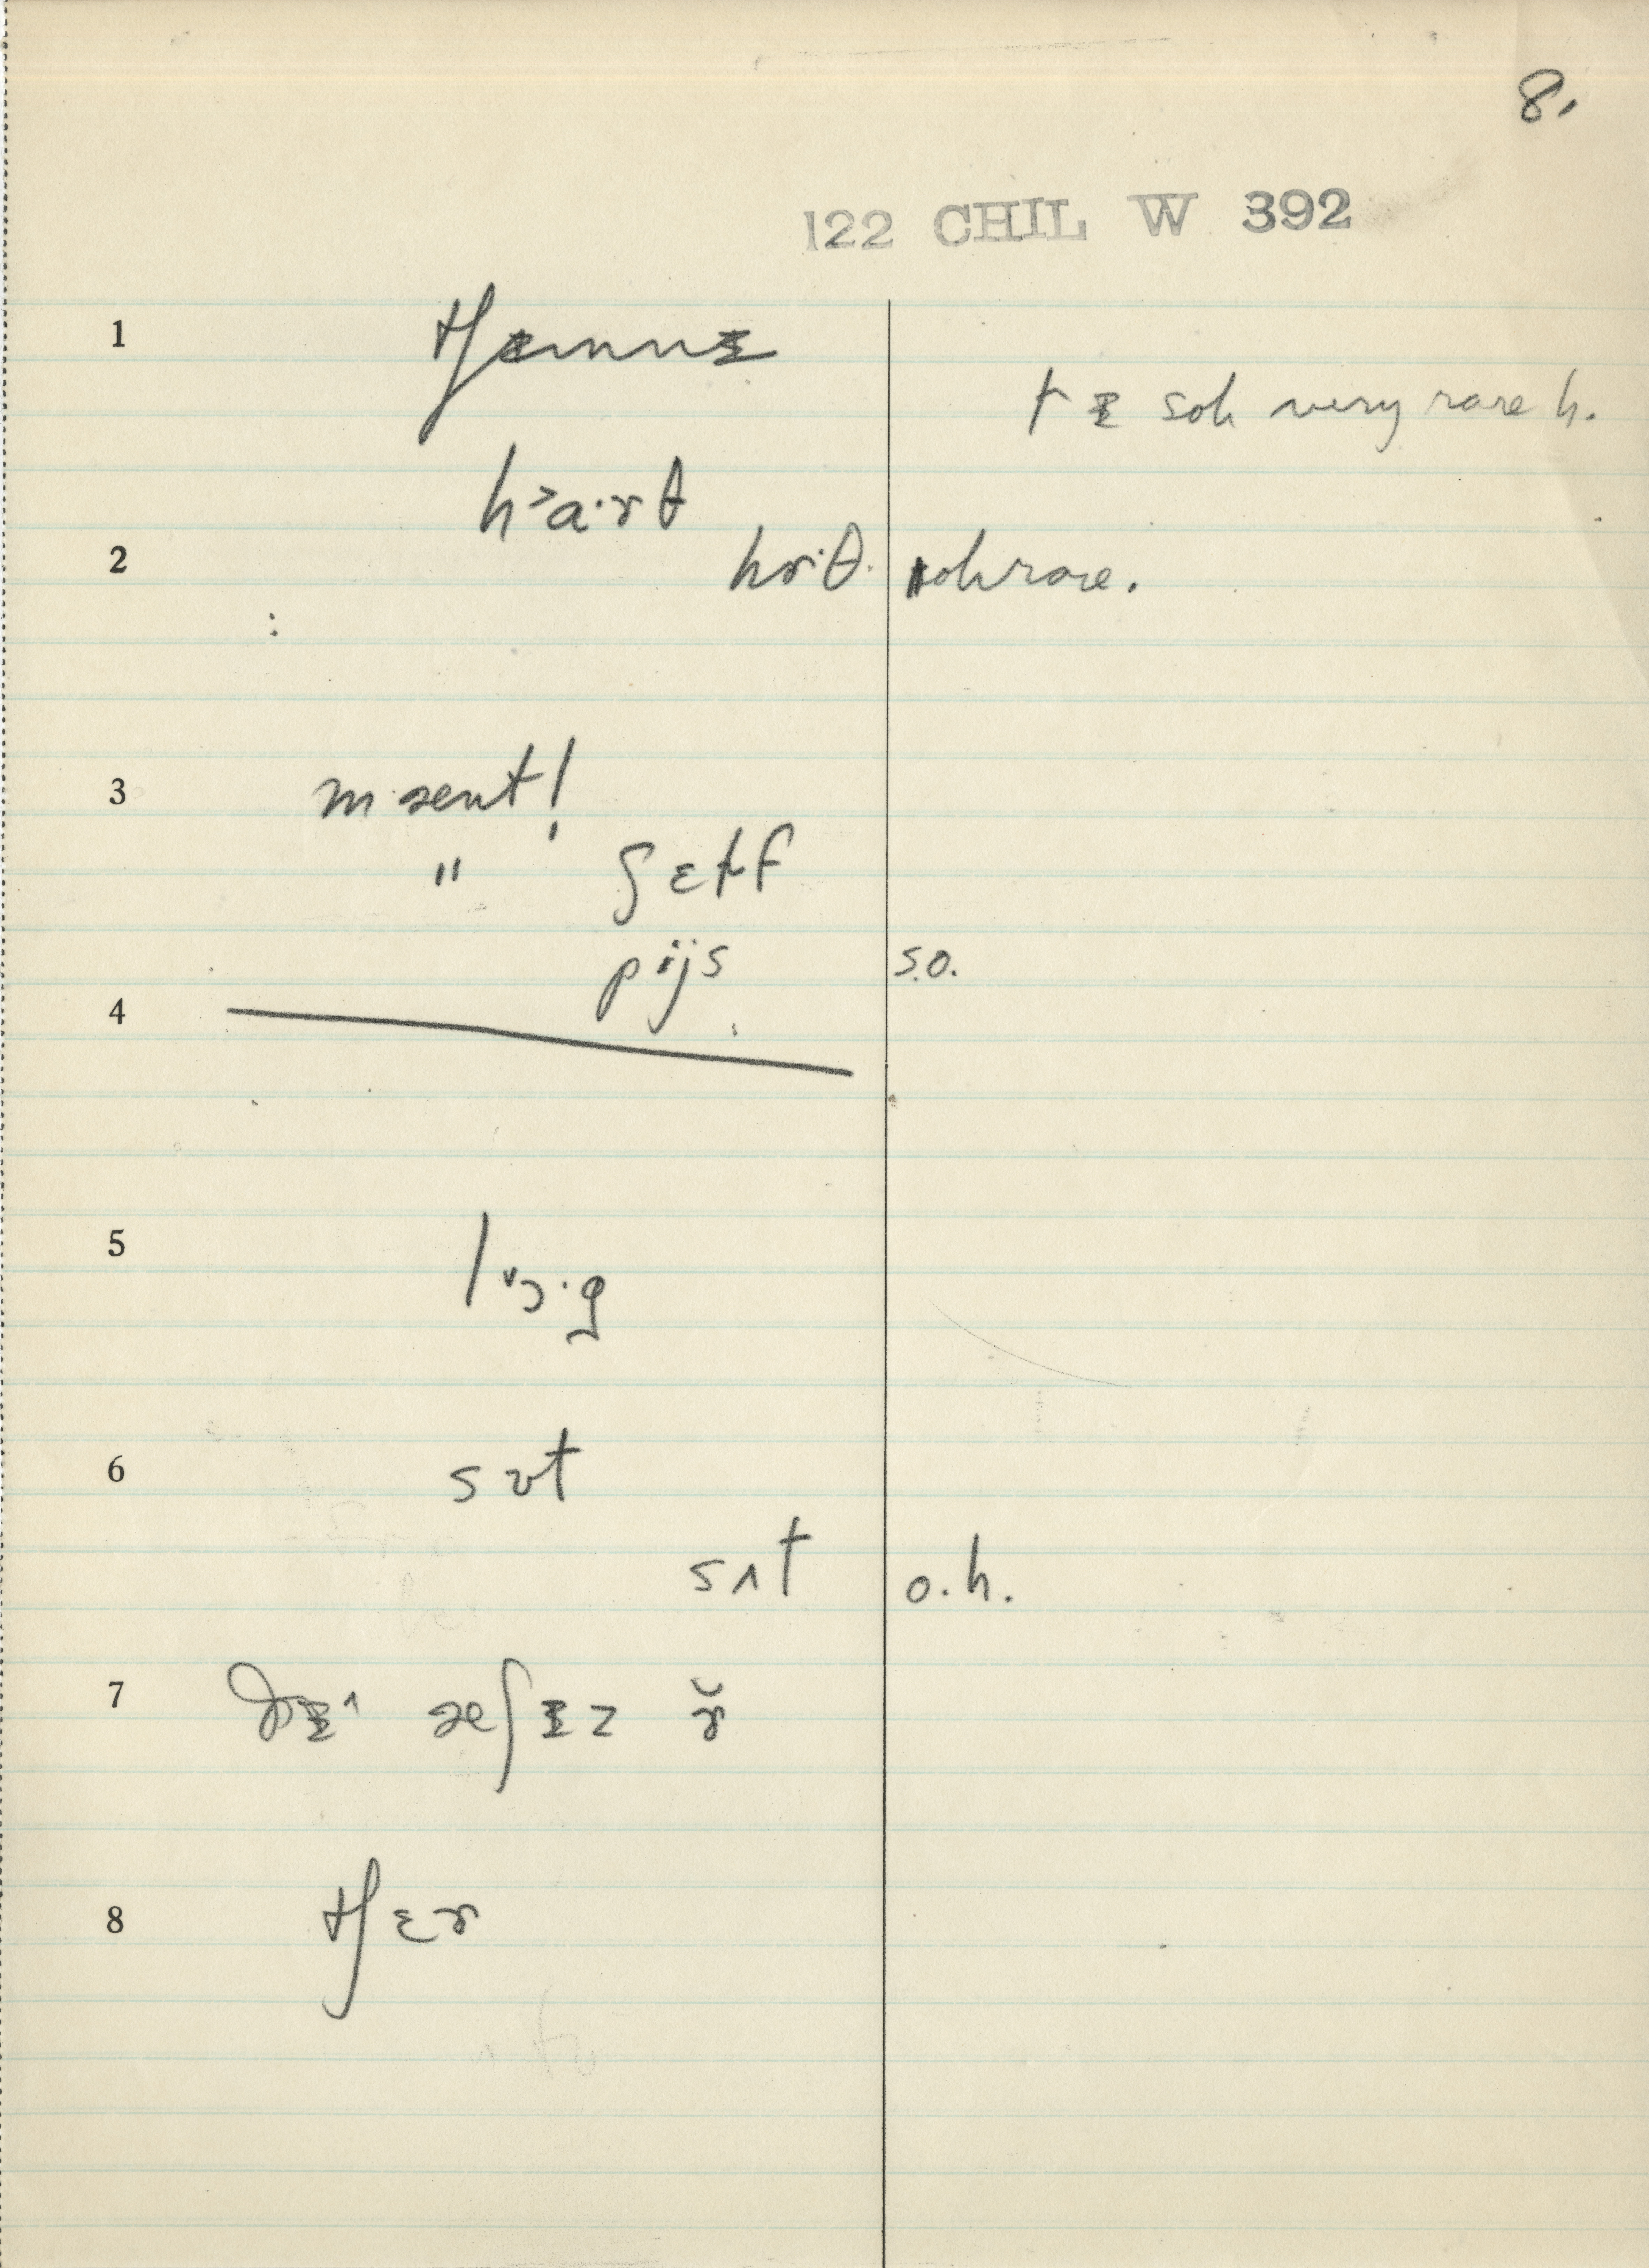 8.
122 CHIL W 392
1
tʃɪmnɪ
t ɪ soh very rare h.
h˃a·rθ
2
hɚ·θ. soh rare.
:
3
mæent!
" ʃɛɫf
pijs s.o.
4
5
l ˅ɔ·g
6
sʊt
sʌt o.h.
7
ðɪ^ æʃɪz ɚ̆
8
tʃɛɚ